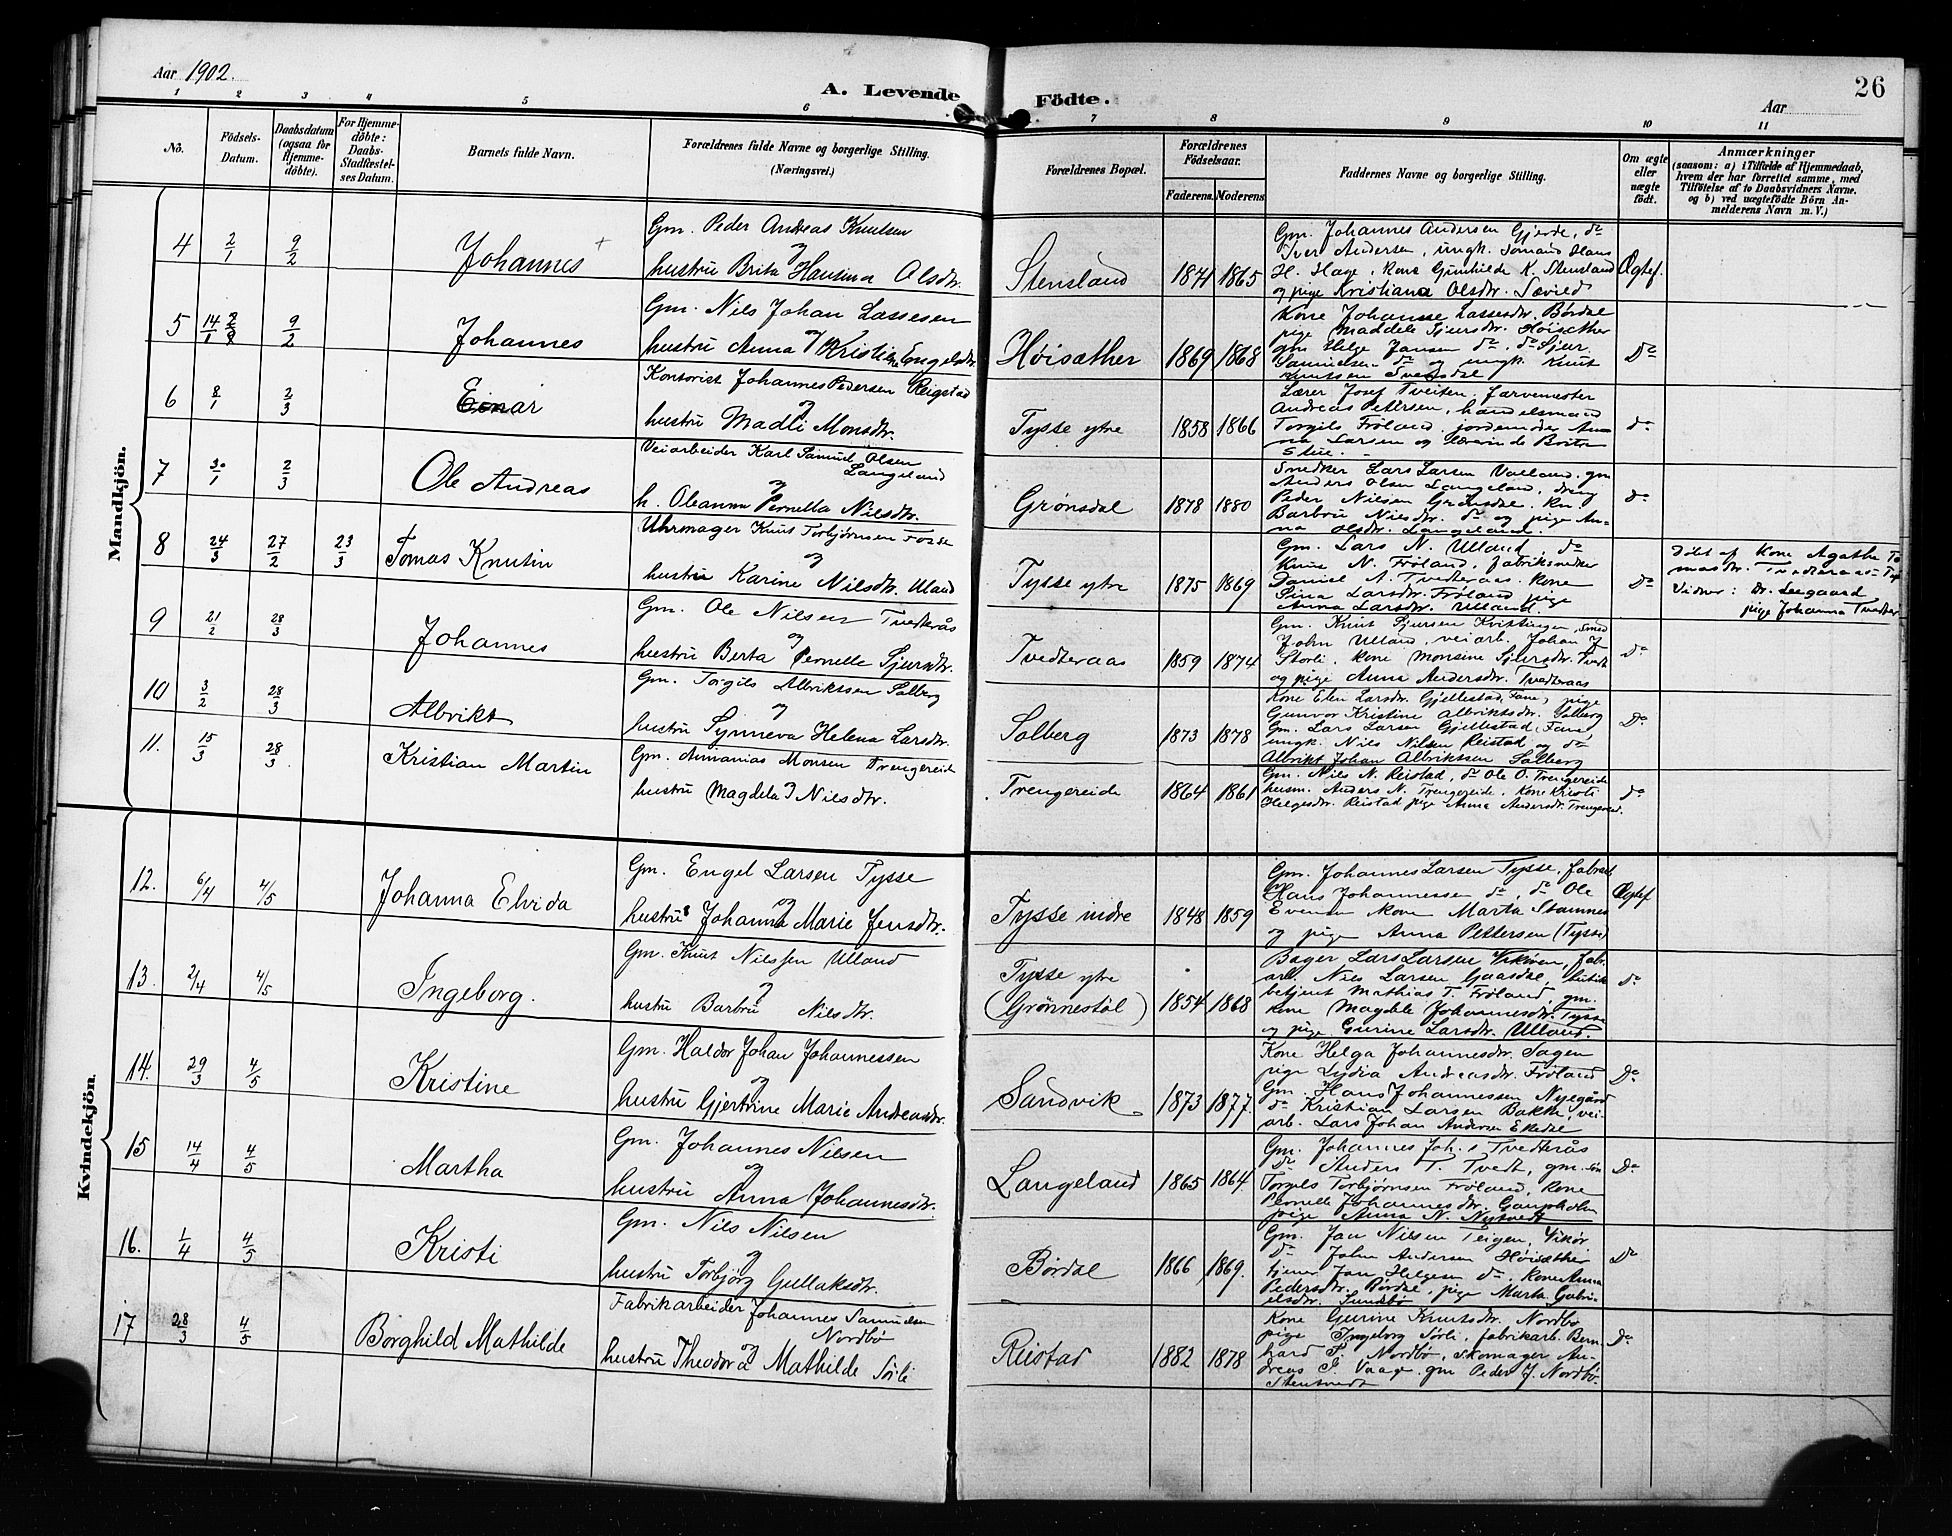 Aar 1902.
A. Levende Födte.
Aar
26
1 2 3 4 5 6 7 8 9 10 11
No.
Födsels-Datum.
Daabsdatum (ogsaa for Hjemme-döbte).
For Hjemme-döbte: Daabs-Stadfæstel-ses Datum.
Barnets fulde Navn.
Forældrenes fulde Navne og borgerlige Stilling.
(Næringsvei.)
Forældrenes Bopæl.
Forældrenes Födselsaar.
Faderens. Moderens
Faddernes Navne og borgerlige Stilling.
Om ægte eller uægte födt.
Anmærkninger
(saasom: a) i Tilfælde af Hjemmedaab, hvem der har forrettet samme, med Tilföielse af to Daabsvidners Navne, og b) ved uægtefödte Börn An-melderens Navn m. V.)
Mandkjön.
4 2/1 9/2 Johannes
Gm. Peder Andreas Knutsen
og
hustru Brita Hansina Olsdtr.
Stensland 1871 1865
Gm. Johannes Andersen Gjerde, do
Iver Andersen, ungk. Tomas Hans
H. Hage, kone Gunhilde K. Stensland
og pige Kristiana Olsdtr. Sævild
Ægtef.
5 14/1 9/2 Johannes
Gm. Nils Johan Lassesen
og
hustru Anna Kristine Engelsdtr.
Høisæther 1869 1868
Kone Johanne Lassesdtr. Børdal
pige Maddela Sjursdtr. Høisæther
gm Helge Jansen do, do Sjur
Samuelsen do og ungk. Knut
Knutsen Tveitdal
Do
6 8/1 2/3 Einar
Kontorist Johannes Pedersen Reigstad
og
hustru Madli Monsdtr.
Tysse ytre 1858 1866
Lærer Josef Tveiten, farvemester
Andreas Pettersen, handelsmand
Torgils Fröland, jordemoder An-
na Larsen og lærerinde Brita
do
7 30/1 2/3 Ole Andreas
Veiarbeider Karl Samuel Olsen
Langeland
og
h. Oleanna Pernella Nilsdtr.
Grønsdal 1878 1880
Snedker Lars Larsen Vaaland, gm
Anders Olsen Langeland, dreng
Peder Nilsen Grønsdal, kn.
Barbru Nilsdtr. do og pige An-
na Olsdtr. Langeland.
do
8 24/3 27/2 23/3 Tomas Knutin
Uhrmager Knut Torbjørnsen Fosse
og
hustru Karine Nilsdtr. Uland
Tysse ytre 1875 1869
Gm. Lars N. Ulland, do
Knut N. Fröland, fabriksnedker
Daniel A. Tvedteraas, kone
Sina Larsdtr. Fröland, pige
Anna Larsdtr. Ulland.
Do
Döbt af Kone Agatha To
masdtr. Tvedteraas
Vidner: Dr. Leegaard
pige Johanna Tvedter
9 21/2 28/3 Johannes
Gm. Ole Nilsen Tvedterås
og
hustru Berta Pernelle Sjursdtr.
Tvedteraas 1859 1874
Gm. Knut Sjursen Kvittingen, smed
John Ulland, veiarb. Johan J.
Storli, kone Monsine Sjursdtr. Tvedt
og pige Anna Andersdtr. Tvedteraas
do
10 3/2 28/3 Albrikt
Gm. Torgils Albriktsen Solberg
og
hustru Synneva Helena Larsdtr.
Solberg 1873 1878
Kone Elen Larsdtr. Gjellestad, Fane, pige
Gunvor Kristine Albriktsdtr. Solberg
Gm. Lars Larsen Gjellestad, Fane
ungk. Nils Nilsen Reistad og do
Albrikt Johan Albriktsen Solberg
Do
11. 15/3 28/3. Kristian Martin
Gm. Annanias Monsen Trengereide
og
hustru Magdela Nilsdtr.
Trengereide 1864 1861
Gm. Nils N. Reistad, do Ole O. Trengereide
husm. Anders N. Trengereide, Kone Kristi
Helgesdtr. Reistad pige Anna Andersdtr. Trengereid.
do
Kvindekjön.
12. 6/4 4/5 Johanna Elvida
Gm. Engel Larsen Tysse
og
hustru Johanna Marie Jensdtr.
Tysse indre 1848 1859
Gm. Johannes Larsen Tysse, fabrik
Hans Johannessen do, do Ole
Evensen kone Marta Stamnes
og pige Anna Pettersen (Tysse)
Ægtef
13. 2/4 4/5 Ingeborg.
Gm. Knut Nilssen Ulland
og
hustru Barbru Nilsdtr.
Tysse ytre
(Grønnestöl) 1854 1868
Bager Lars Larsen Vikören, fabr.
arb. Nils Larsen Gaasdal, butik
betjent Mathias T. Fröland, gm.
kone Magdele Johannesdtr. Tysse
og pige Gurine Larsdtr. Ulland.
do
14. 29/3 4/5 Kristine
Gm. Haldor Johan Johannessen
og
hustru Gjertrine Marie Andreasdtr.
Sandvik 1873 1877.
Kone Helga Johannesdtr. Sagen
pige Lydia Andreasdtr. Fröland
Gm. Hans Johannessen Nyegård
do Kristian Larsen Bakke, vei-
arb. Lars Johan Andersen Ekedal
Do
15 14/4 4/5 Martha
Gm. Johannes Nilsen
og
hustru Anna Johannesdtr.
Langeland 1865 1864.
Gm. Johannes Joh.s Tvedterås
do Anders T. Tvedt, gm. sön
Torgils Torbjørnsen Fröland, kone
Pernelle Johannesdtr. Gaupholm
pige Anna N. Nytvedt
Do
16. 1/4 4/5 Kristi
Gm. Nils Nilsen
og
hustru Torbjörg Gullaksdtr.
Børdal 1866 1869.
Gm. Jan Nilsen Teigen, Vikør
do John Andersen Høisæther
tjener Jan Helgesen do, kone Anna
Pedersdtr. Børdal, pige Marta Gabri-
elsdtr. Sundbø
Do
17 28/3 4/5 Borghild Mathilde
Fabrikarbeider Johannes Samuelsen
Nordbø
og
hustru Theodora Mathilde Sörli
Reistad 1882 1878
Kone Gurine Knutsdtr. Nordbø
pige Ingeborg Sörli, fabrikarb. Bern-
hard S. Nordbø, skomager An-
dreas J. Vaage, gm Peder J. Nordbø
Stensvedt
Do